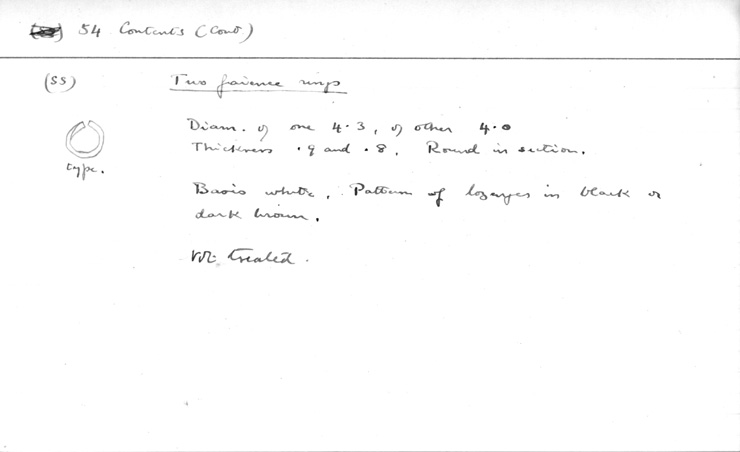 54 Contents (Cont)
(SS)
Two faience rings
Diam. of one 4.3, of other 4.0
Thickness .9 and .8. Round in section.
type.
Basis white. Pattern of lozenges in black or
dark brown.
treated.